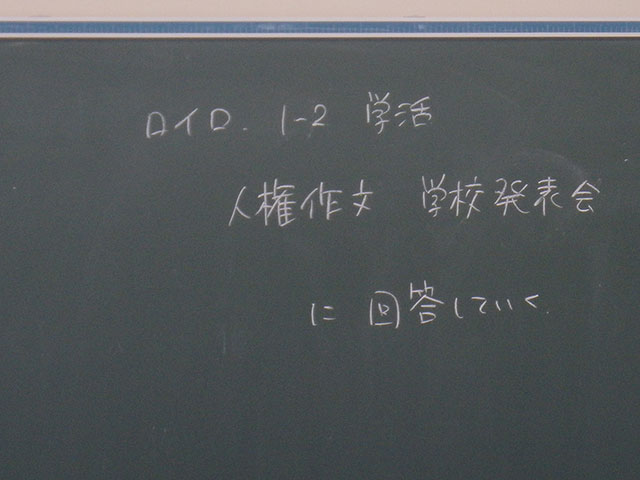 ロイロ. 1-2 学活
人権作文 学校発表会
に 回答していく